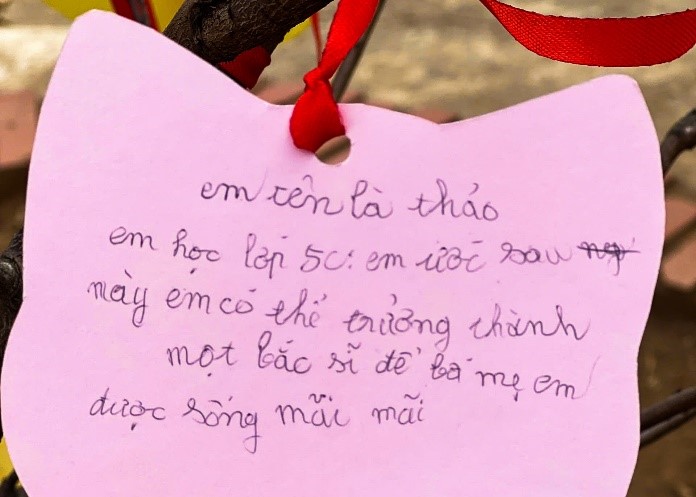 em tên là thảo
em học lớp 5C: em ước sau
này em có thể trưởng thành
một bác sĩ để bố mẹ em
được sống mãi mãi